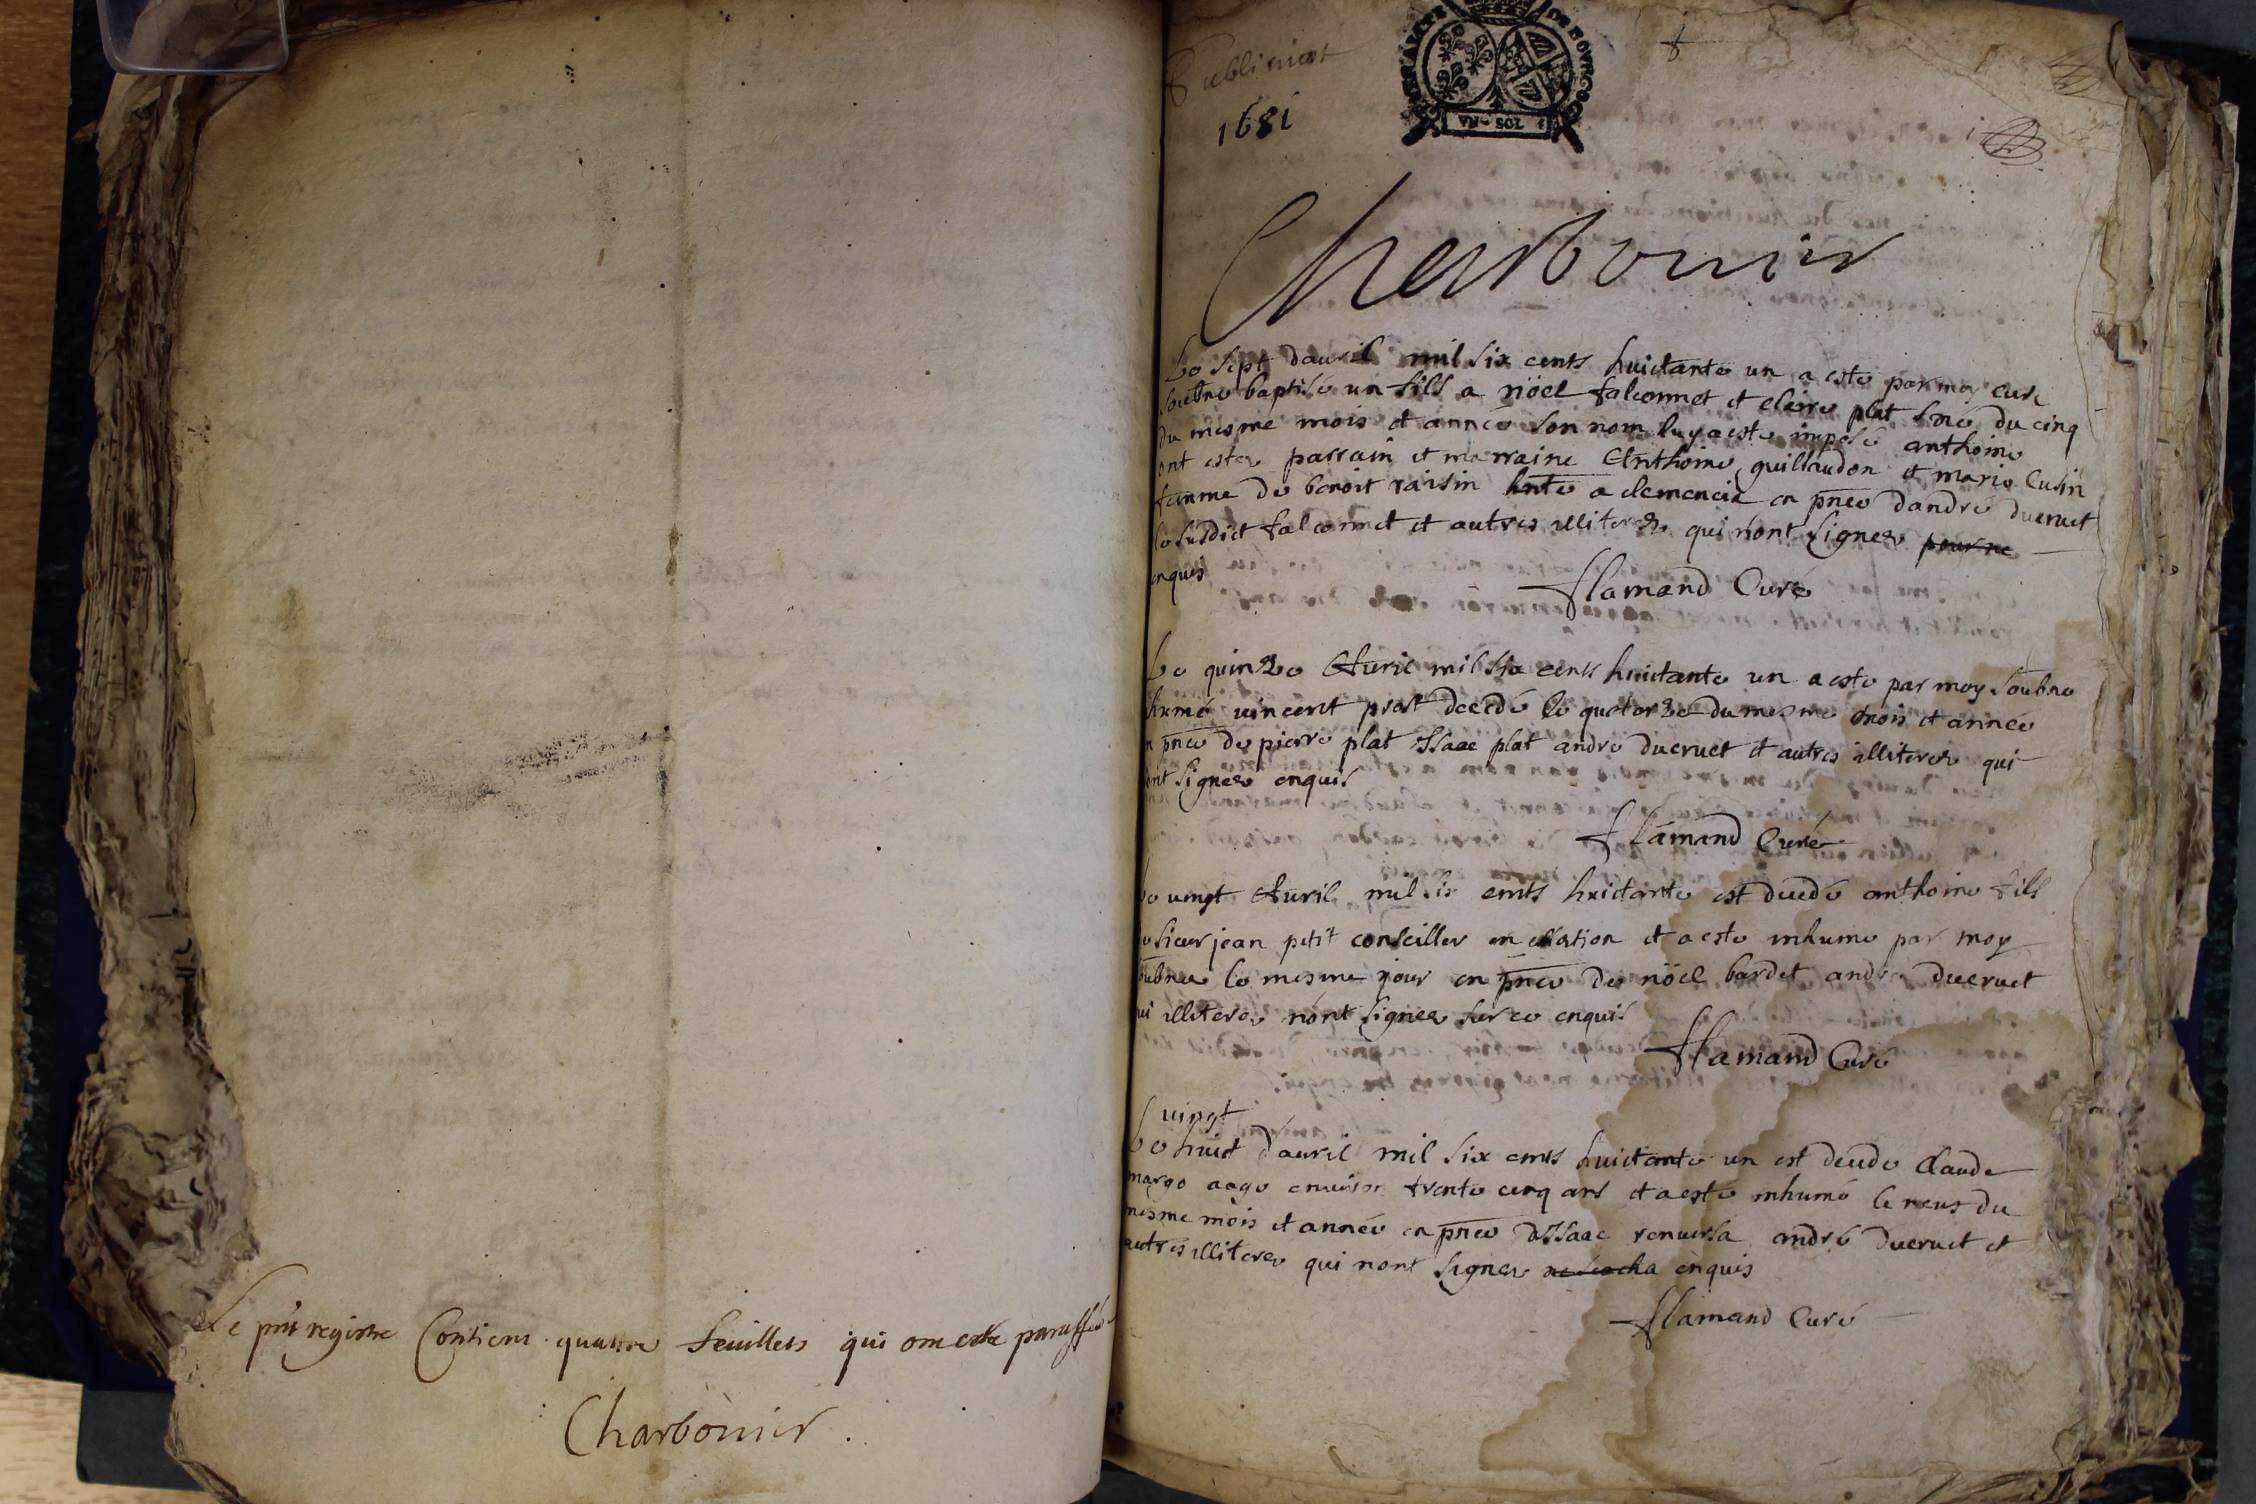 Le pnt registre Contient quattre feuillets qui ont esté paraffés
Charbonier.
1681
GENERALITE DE BOURGOG
VN SOL
Charbonier
Le sept dauril mil six cents huictante un a esté par moy curé
soubne baptisé un fils a nöel falconnet et claire plat né du cinq
du mesme mois et année son nom luy a esté imposé anthoine
ont estez parrain et marraine Anthoine guillaudon et marie Cusin
femme de benoit raisin a clemencia en pnce dandré ducruet
le susdict falconnet et autres illiterez qui nont signez pour ne
enquis
flamand Curé
Le quinze Auril mil six cents huictante un a esté par moy soubne
humé uincent prost decedé le quatorze du mesme mois et année
en pnce de pierre plat Isaac plat andre ducruet et autres illiterez qui
nont signez enquis
flamand Curé
Le uingt Auril mil six cents huictante est decedé anthoine fils
du sieur jean petit conseiller en election et a esté inhumé par moy
soubne le mesme jour en pnce de nöel bardet andre ducruet
qui illiterez nont signez sur ce enquis
flamand Curé
uingt
Le huict dauril mil six cents huictante un est decede claude
margo aagé enuiron trente cinq ans et a esté inhumé le neuf du
mesme mois et année en pnce dIsaac renuersa andré ducruet et
autres illiterez qui nont signez enquis
flamand Curé